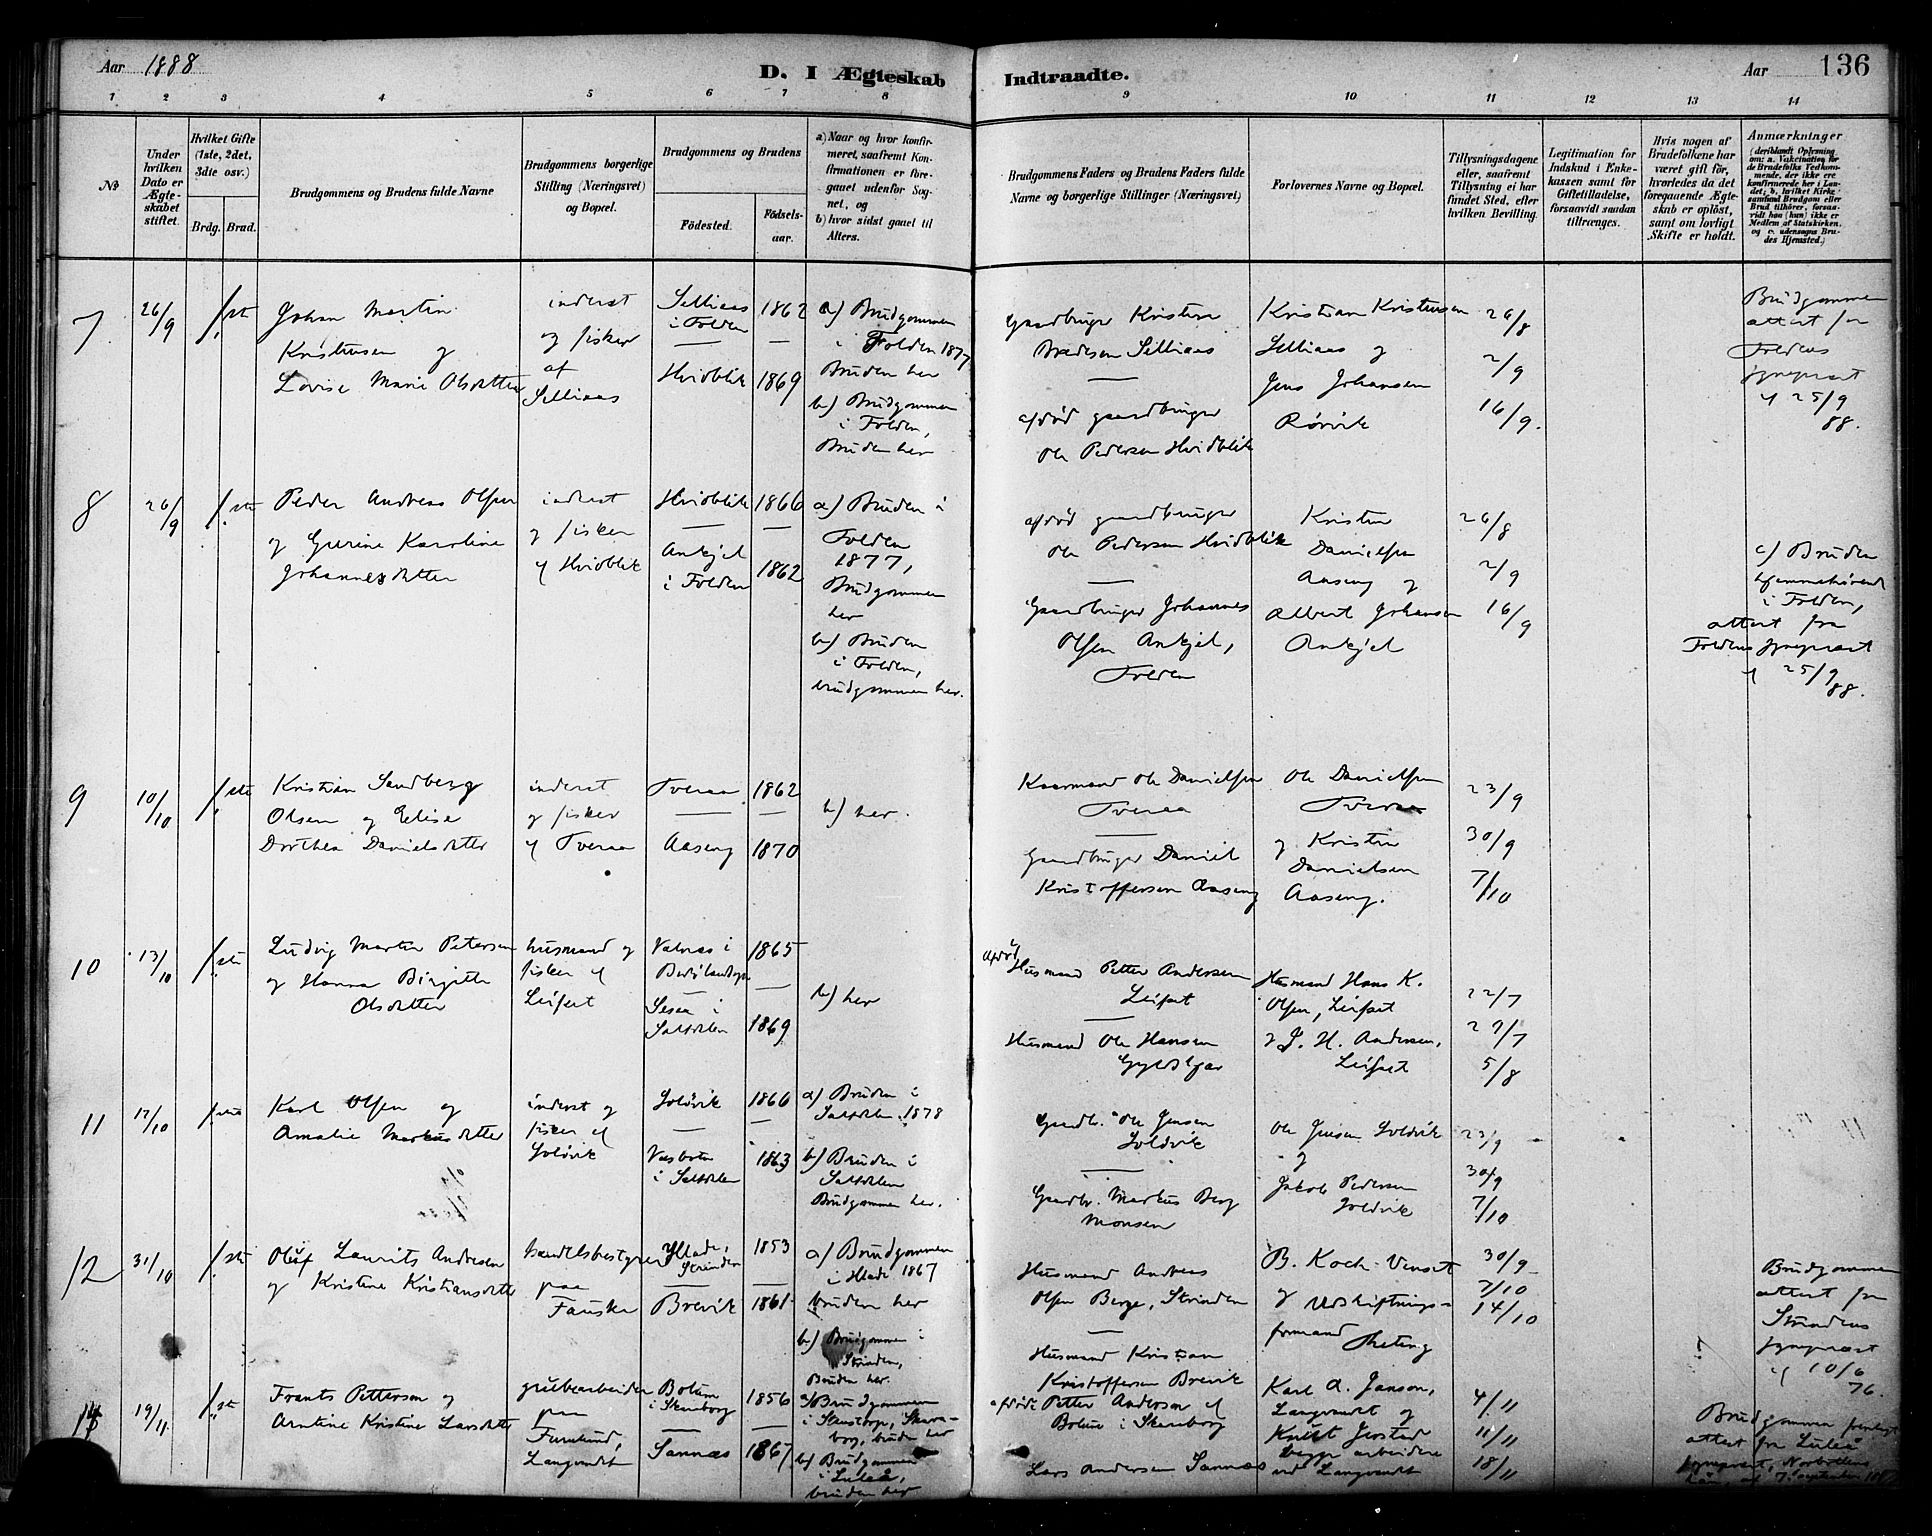 Aar 1888
D. I Ægteskab Indtraadte.
Aar 136
1 2 3 4 5 6 7 8 9 10 11 12 13 14
No
Under hvilken Dato er Ægteskabet stiftet.
Hvilket Gifte (1ste, 2det, 3die osv.)
Brdg. Brud.
Brudgommens og Brudens fulde Navne
Brudgommens borgerlige Stilling (Næringsvei) og Bopæl.
Brudgommens og Brudens
Fødested.
Fødselsaar.
a) Naar og hvor konfirmeret, saafremt Konfirmationen er foregaaet udenfor Sognet, og
b) hvor sidst gaaet til Alters.
Brudgommens Faders og Brudens Faders fulde Navne og borgerlige Stillinger (Næringsvei)
Forlovernes Navne og Bopæl.
Tillysningsdagene eller, saafremt Tillysning ei har fundet Sted, efter hvilken Bevilling.
Legitimation for Indskud i Enkekassen samt for Giftetilladelse, forsaavidt saadan tiltrænges.
Hvis nogen af Brudefolkene har været gift før, hvorledes da det foregaaende Ægteskab er opløst, samt om lovligt Skifte er holdt.
Anmærkninger (deriblandt Oplysning om: a. Vakcination for de Brudefolks Vedkommende, der ikke ere konfirmerede her i Landet; b. hvilket Kirkesamfund Brudgom eller Brud tilhører, forsaavidt han (hun) ikke er Medlem af Statskirken, og c. udensogns Brudes Hjemsted.)
7 26/9 1ste
Johan Martin
Kristensen og
Lovise Marie Olsdatter
inderst
og fisker
af
Selliaas
Selliaas
i Folden
1862
Hvidblik 1869
a) Brudgommen
i Folden 1877
Bruden her
b) Brudgommen
i Folden,
Bruden her
Gaardbruger Kristen
Selliaas
afdød gaardbruger
Ole Pedersen Hvidblik
Kristian Kristensen
Selliaas og
Jens Johansen
Rørvik
26/8
2/9
16/9.
Brudgommen
attest fra
Foldens
sogneprest
af 25/9
88.
8 26/9 1ste
Peder Andreas Olsen
og Gurine Karoline
Johannesdatter
inderst
og fisker
af Hvidblik
Hvidblik 1866
Ankjel
i Folden 1862
a) Bruden i
Folden
1877,
Brudgommen
her
b) Bruden
i Folden,
brudgommen her.
afdød gaardbruger
Ole Pedersen Hvidblik
Gaardbruger Johannes
Olsen Ankjel,
Folden
Kristen
Danielsen
Aaseng og
Albert Johansen
Ankjel
26/8
2/9
16/9
c) Bruden
hjemmehørende
i Folden,
attest fra
Foldens sogneprest
af 25/9
88.
9 10/10 1ste
Kristian Sandberg
Olsen og Elise
Dorthea Danielsdatter
inderst
og fisker
af Tveraa
Tveraa 1862
Aaseng 1870
b) her.
Kaarmand Ole Danielsen
Tveraa
Gaardbruger Daniel
Kristoffersen Aaseng
Ole Danielsen
Tveraa
og Kristen
Danielsen
Aaseng.
23/9
30/9
7/10
10 13/10 1ste
Ludvig Martin Petersen
og Hanna Birgitte
Olsdatter
husmand og
fisker af
Leifset
Valnæs i
1865
i
Saltdalen 1869
b) her
afdød
Husmand Petter Andersen
Leifset
Husmand Ole Hansen
Husmand Hans K.
Olsen, Leifset
og J. H. Andersen,
Leifset
22/7
29/7
5/8
11 17/10 1ste
Karl Olsen og
Amalie Markusdatter
inderst og
fisker af
Loldvik
Loldvik 1866
Vasbotn
i Saltdalen 1863
a) Bruden i
Saltdalen 1878
b) Bruden i
Saltdalen
Brudgommen her.
Gaardbr. Ole Jensen
Loldvik
Gaardbr. Markus Berg
Monsen
Ole Jensen Loldvik
og
Jakob Pedersen
Loldvik
23/9
30/9
7/10
12 31/10 1ste
Oluf Laurits Andresen
og Kristine Kristiansdatter
handelsbestyrer
paa
Fauske
Hlade,
Strinden 1853
Brevik 1861
a) Brudgommen
i Hlade 1867
bruden her
b) Brudgommen i
Strinden,
Bruden her.
Husmand Andreas
Olsen Berge, Strinden
Husmand Kristian
Kristoffersen Brevik
B. Koch Venset
og Udskiftnings-
formand
30/9
7/10
14/10
Brudgommen
attest fra
Strindens
sogneprest
af 10/6
76.
13 19/11 1ste
Frants Petterson og
Arntine Kristine Larsdatter
grubearbeider
paa
Furulund,
Langvandt
Bolum
i Skaraborg 1856
Sannæs 1867
a) Brudgommen
i Skara-
borg, bruden her
b) Brudgommen
i Luleå,
bruden her
afdøde Petter Anderson af
Bolum i Skaraborg
Lars Andersen Sannæs
Karl A. Janson,
Langvandt og
Knut Jerstad
begge arbeidere
ved Langvandt
4/11
11/11
18/11
Brudgommen
attest fra Luleå
sogneprest, Norbottens
Län, af 7. september